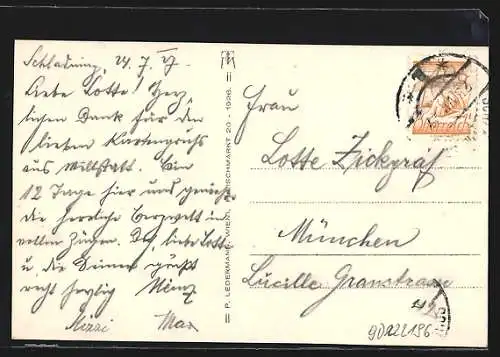 Schladming, 24. 7. 27.
Liebe Lotte! Herz-
lichen Dank für den
lieben Kartengruß
aus Millstatt. Bin
12 Tage hier und genieße
die herrliche Bergwelt in
vollen Zügen. Dich, liebe Lotte
u. die Deinen grüßt
recht herzlig
Mizzi Max
P. LEDERMANN, WIEN I, FLEISCHMARKT 20 - 1926.
Frau
Lotte Zickgraf
München
Lucille Granstrasse
42
90122196